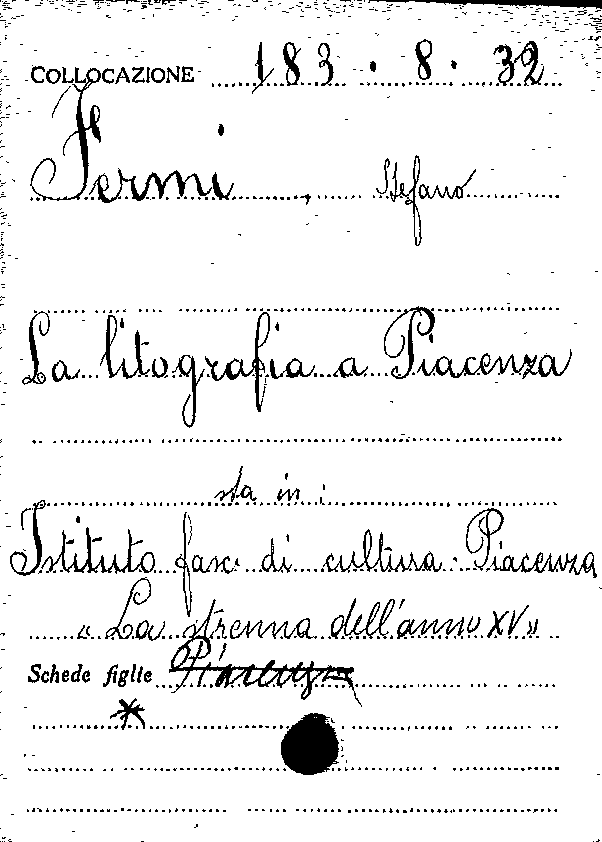 COLLOCAZIONE 183 . 8 . 32
Fermi , Stefano
La litografia a Piacenza
sta in :
Istituto fasc. di cultura . Piacenza
« La strenna dell'anno XV »
Schede figlie Piacenza
*